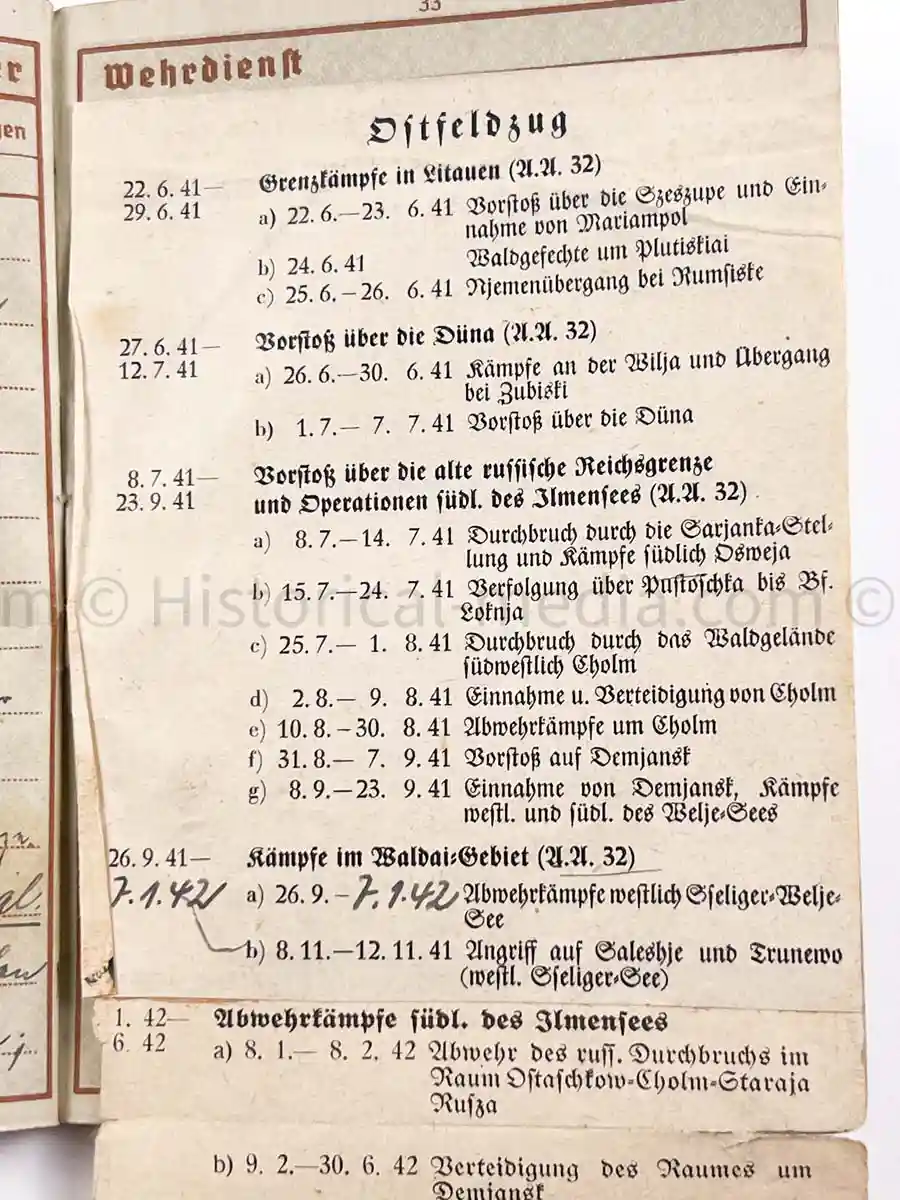 33
Wehrdienst
Ostfeldzug
22. 6. 41— Grenzkämpfe in Litauen (A.A. 32)
29. 6. 41 a) 22. 6.—23. 6. 41 Vorstoß über die Szeszupe und Ein-
nahme von Mariampol
b) 24. 6. 41 Waldgefechte um Plutiskiai
c) 25. 6.—26. 6. 41 Njemenübergang bei Rumsiske
27. 6. 41— Vorstoß über die Düna (A.A. 32)
12. 7. 41 a) 26. 6.—30. 6. 41 Kämpfe an der Wilja und Übergang
bei Zubiski
b) 1. 7.— 7. 7. 41 Vorstoß über die Düna
8. 7. 41— Vorstoß über die alte russische Reichsgrenze
23. 9. 41 und Operationen südl. des Ilmensees (A.A. 32)
a) 8. 7.—14. 7. 41 Durchbruch durch die Sarjanka-Stel-
lung und Kämpfe südlich Osweja
b) 15. 7.—24. 7. 41 Verfolgung über Pustoschka bis Bf.
Loknja
c) 25. 7.— 1. 8. 41 Durchbruch durch das Waldgelände
südwestlich Cholm
d) 2. 8.— 9. 8. 41 Einnahme u. Verteidigung von Cholm
e) 10. 8.—30. 8. 41 Abwehrkämpfe um Cholm
f) 31. 8.— 7. 9. 41 Vorstoß auf Demjansk
g) 8. 9.—23. 9. 41 Einnahme von Demjansk, Kämpfe
westl. und südl. des Welje-Sees
26. 9. 41— Kämpfe im Waldai-Gebiet (A.A. 32)
7. 1. 42 a) 26. 9. - 7. 1. 42 Abwehrkämpfe westlich Sseliger-Welje-
See
b) 8. 11.—12. 11. 41 Angriff auf Saleshje und Trunewo
(westl. Sseliger-See)
1. 42— Abwehrkämpfe südl. des Ilmensees
6. 42 a) 8. 1.— 8. 2. 42 Abwehr des russ. Durchbruchs im
Raum Ostaschkow-Cholm-Staraja
Rusza
b) 9. 2.—30. 6. 42 Verteidigung des Raumes um
Demjansk
m © Historical-Media.com ©